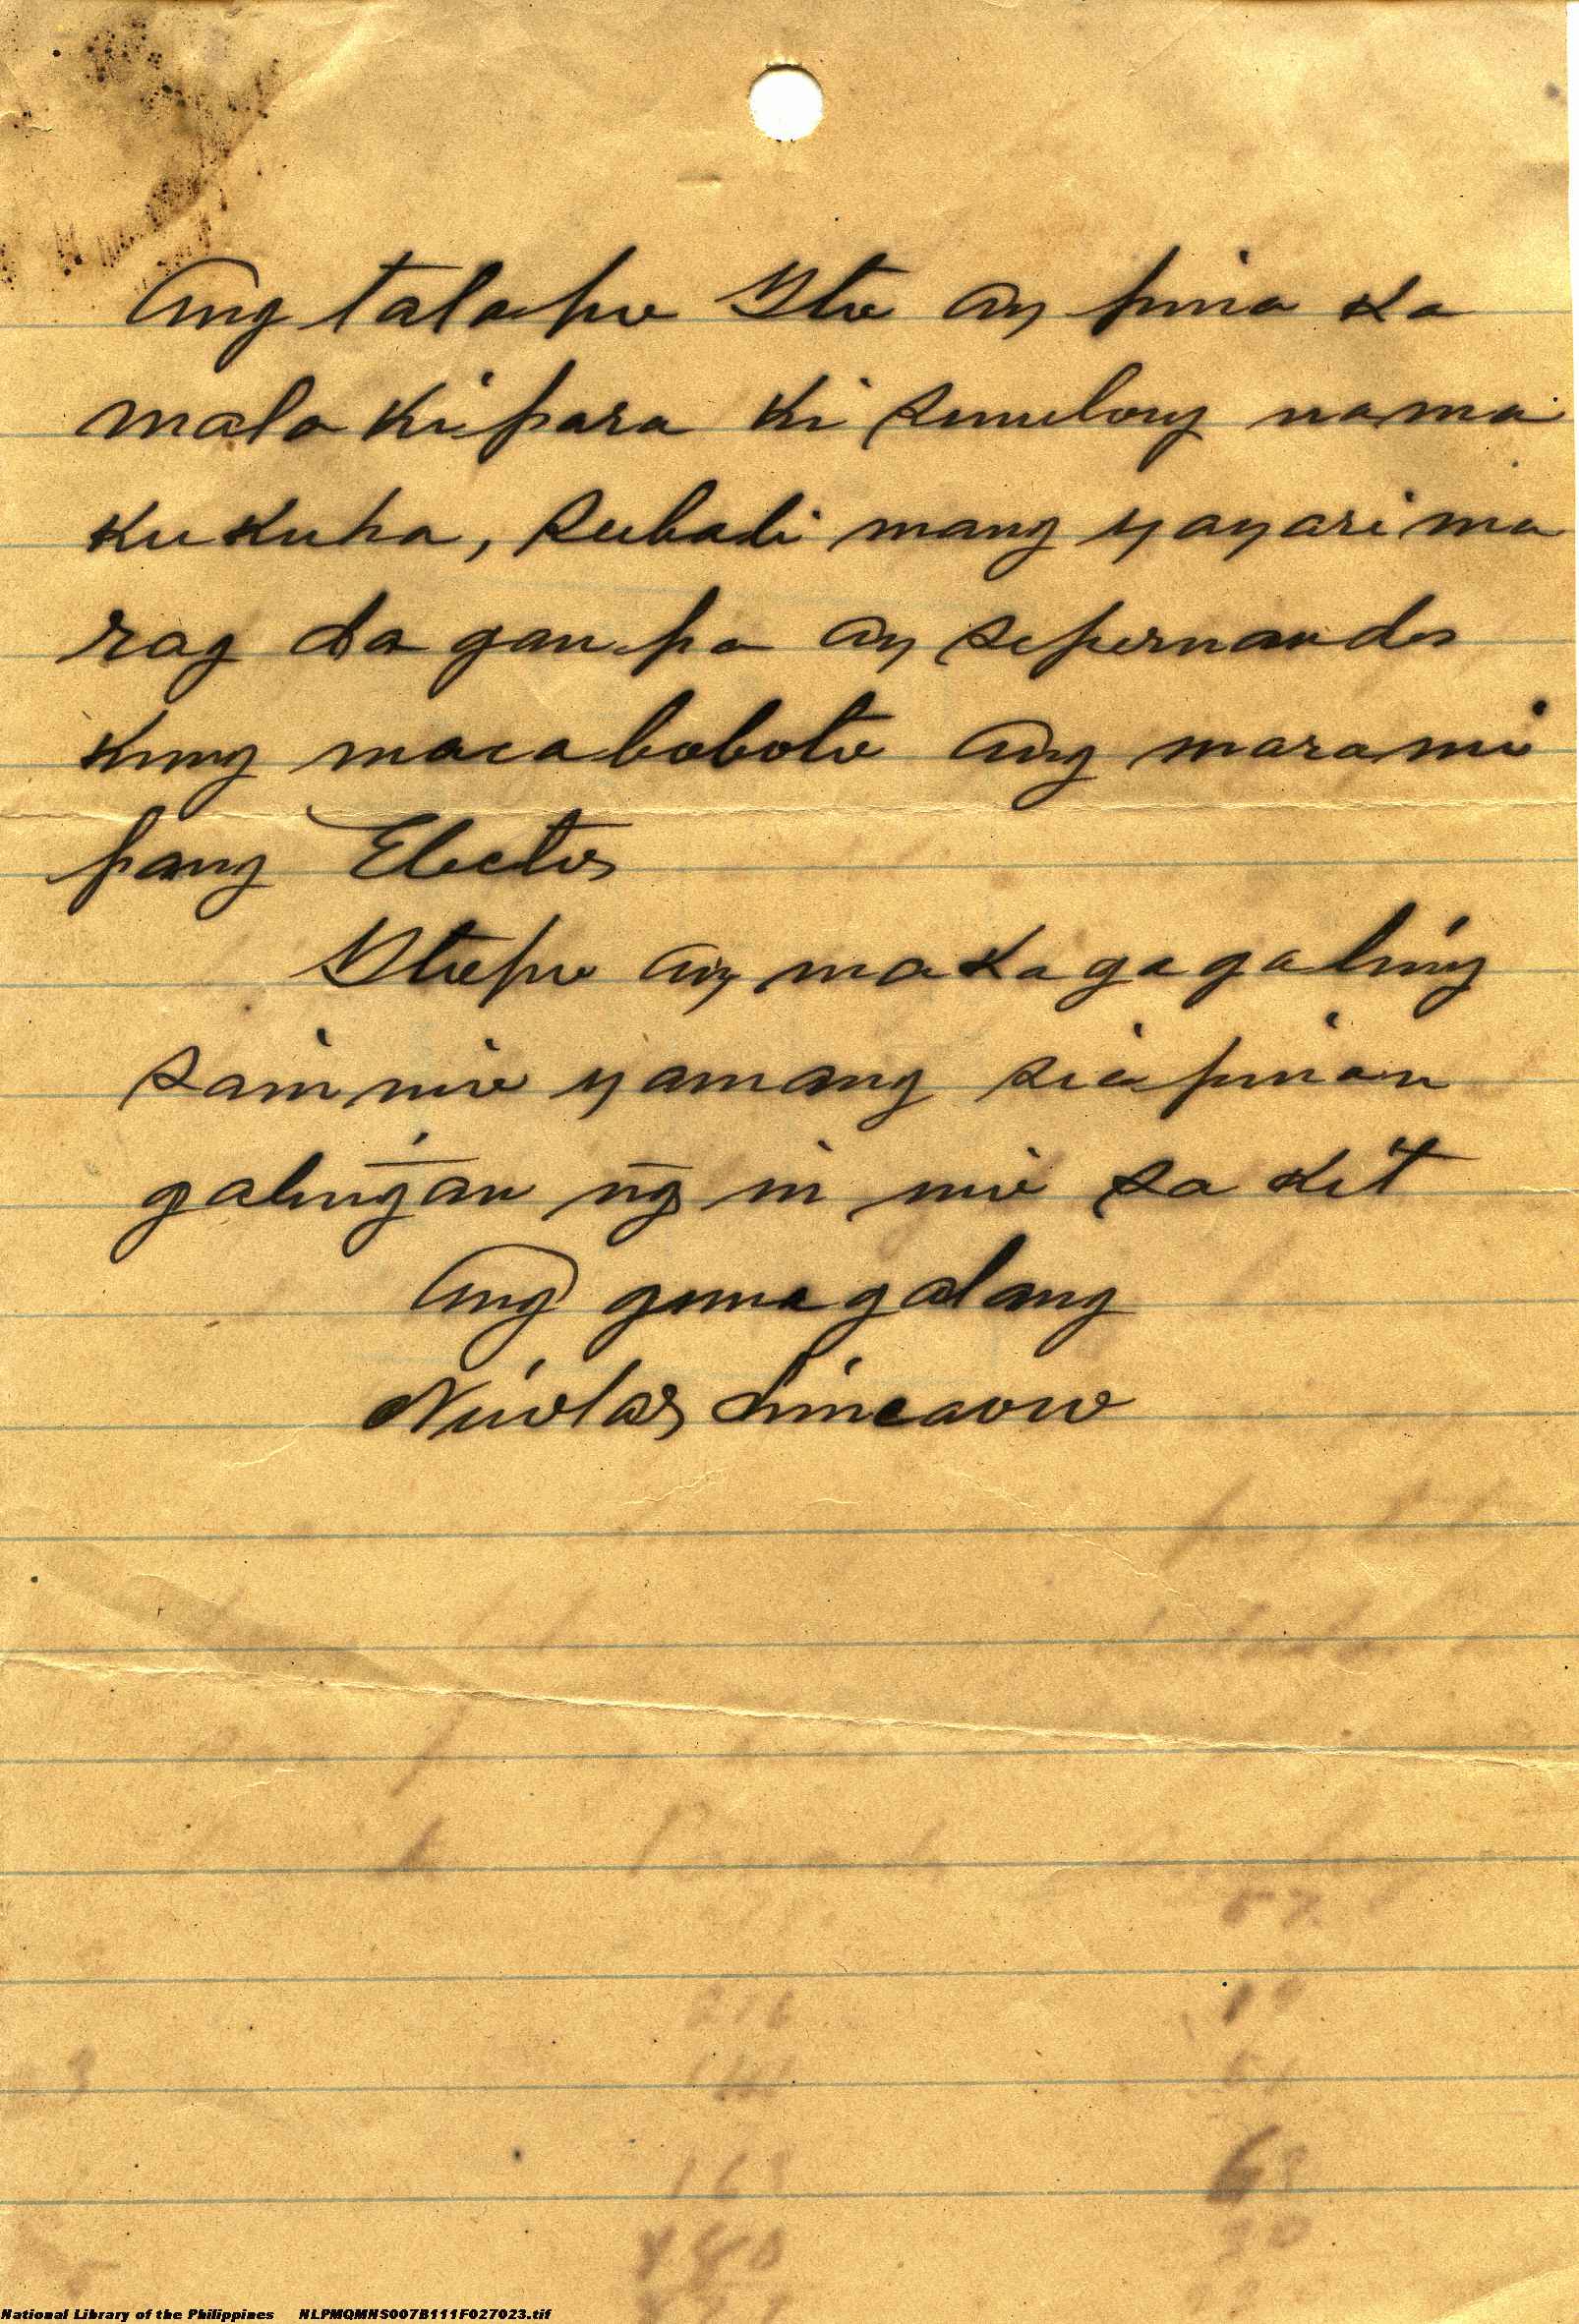 Ang talapo Ito ay pina ka
mala ki para ki Sumulong nama
kukuha, Subali mang yayari ma
rag dagan pa ay se pernandes
kung macaboboto ang marami
pang Electos
Itopo ay makagagaling
sainnio yamang sia pinan
galingan ng in nio sa kit
Ang gumagalang
Nicolas
National Library of the Philippines NLPMQMNS007B111F027023.tif